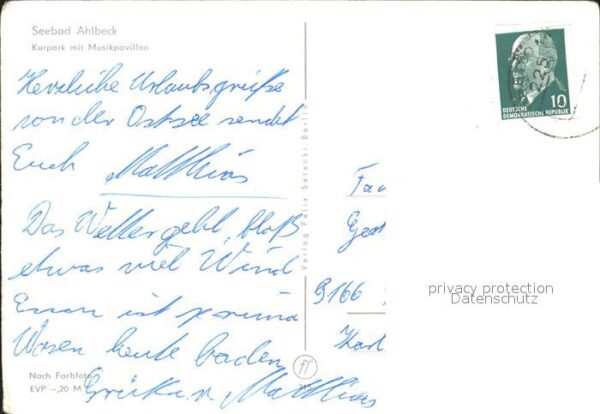 Seebad Ahlbeck
Kurpark mit Musikpavillon
Herzliche Urlaubsgrüße
von der Ostsee sendet
Euch Matthias
Das Wetter geht, bloß
etwas viel Wind
Essen ist prima
Waren heute baden
Matthias
Nach Farbfoto
EVP -,20 M
Verlag Felix Setecki, Berlin
10
DEUTSCHE
DEMOKRATISCHE REPUBLIK
9166
privacy protection
Datenschutz